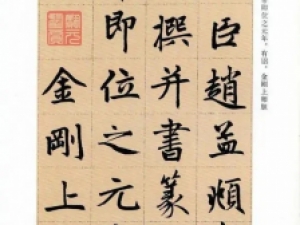 即位之元年，有诏，金刚上师胆
臣趙孟頫
撰并書篆
即位之元
金剛上